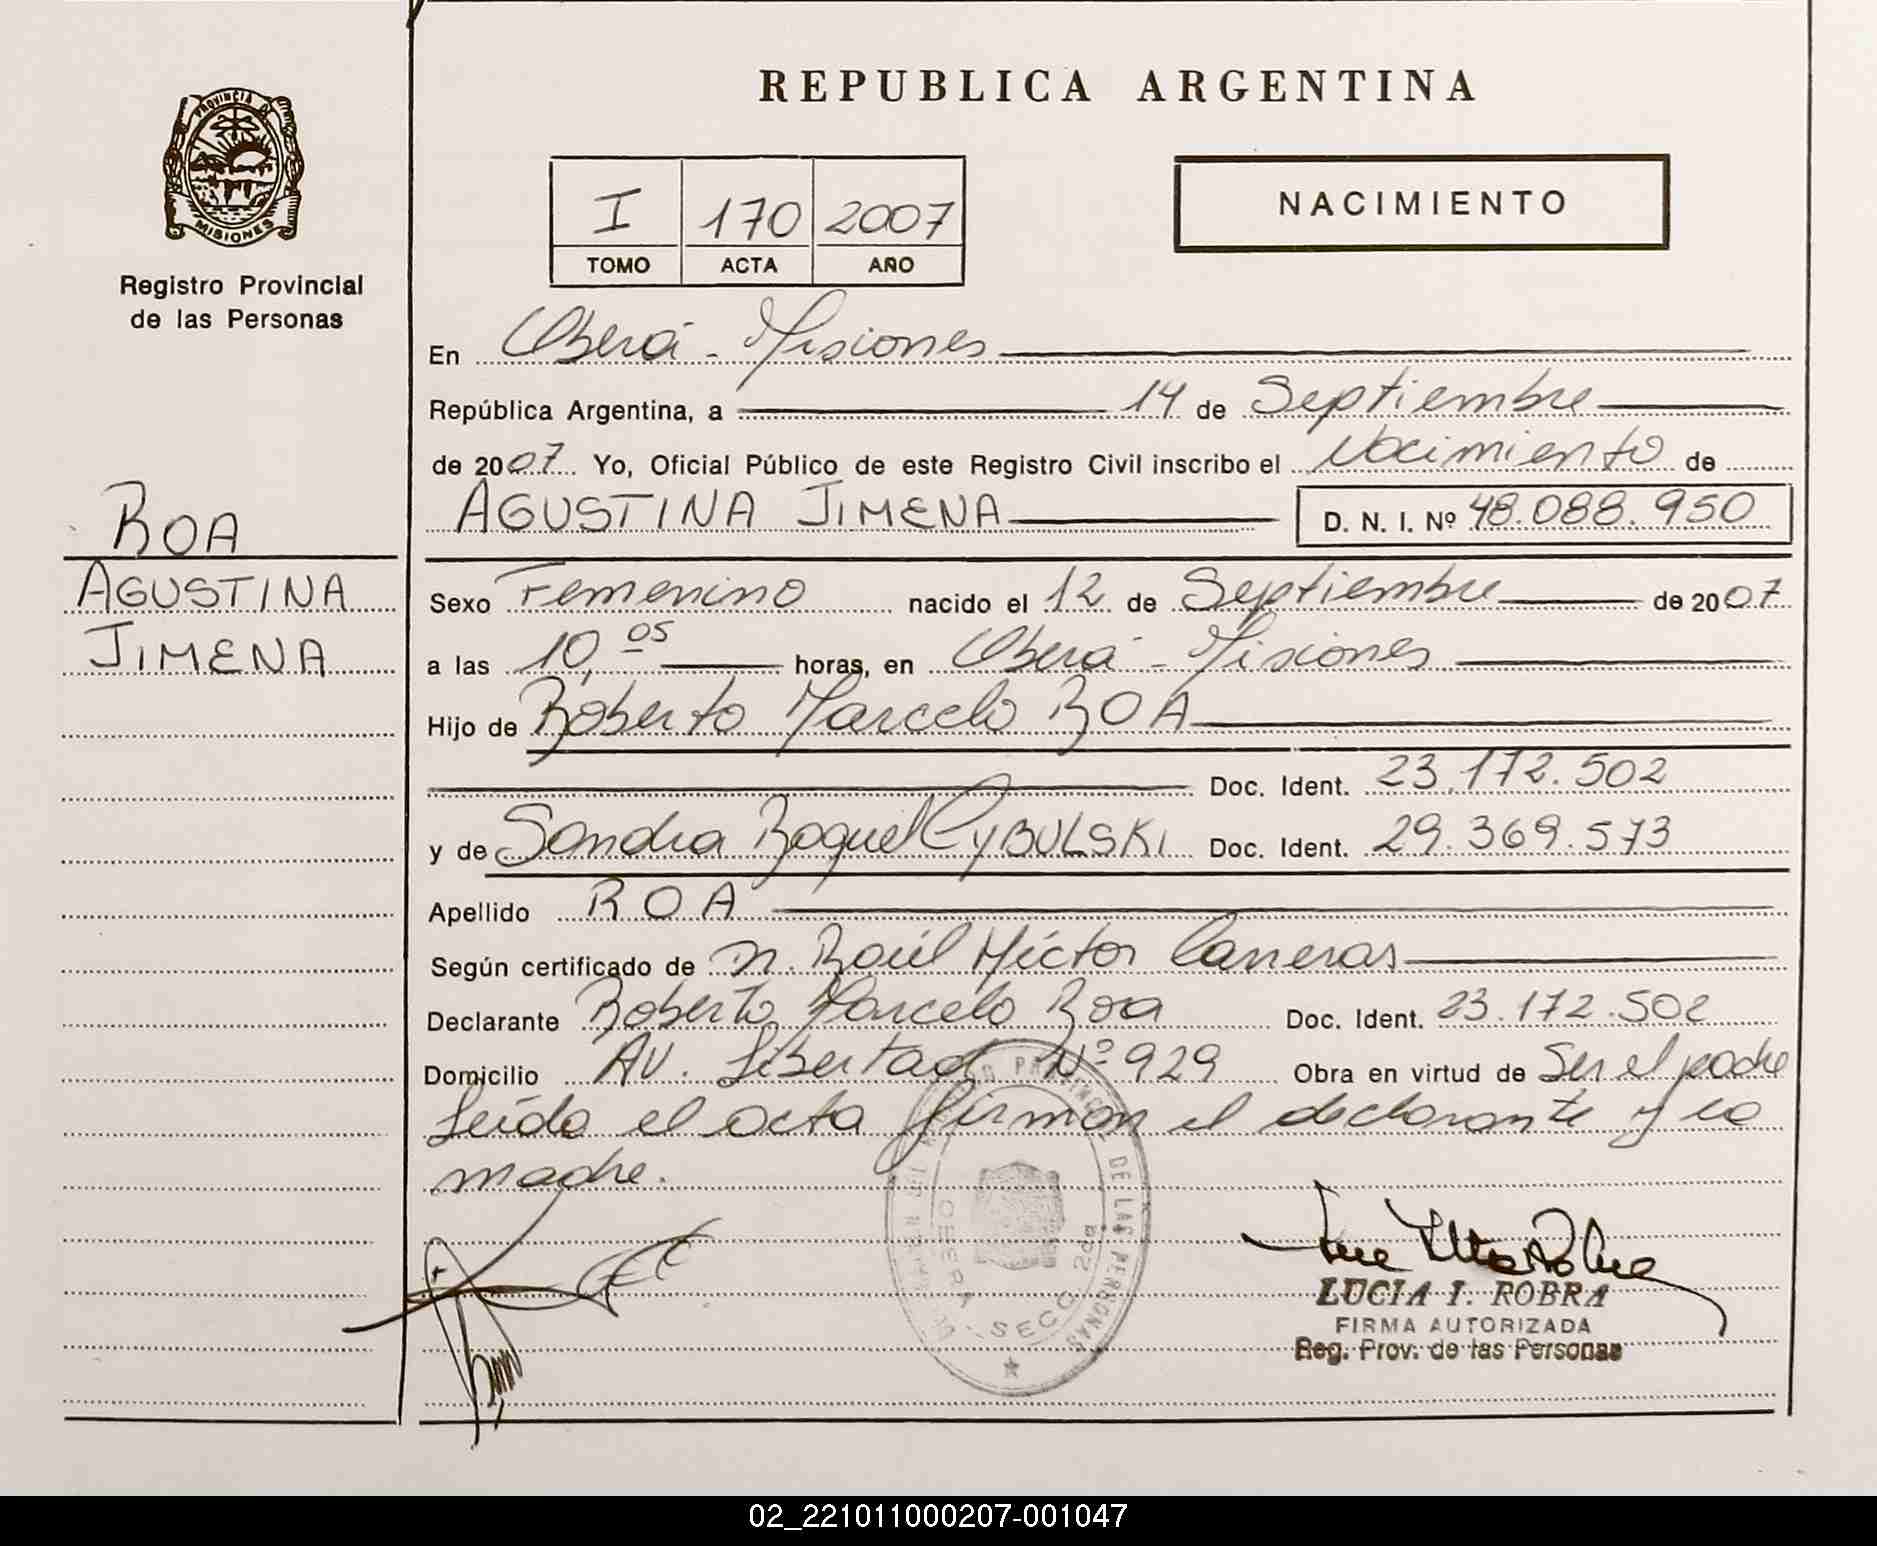 REPUBLICA ARGENTINA
PROVINCIA DE
MISIONES
Registro Provincial
de las Personas
I 170 2007
TOMO ACTA AÑO
NACIMIENTO
En Oberá - Misiones
República Argentina, a 14 de Septiembre
de 2007 Yo, Oficial Público de este Registro Civil inscribo el Nacimiento de
AGUSTINA JIMENA D. N. I. Nº 48.088.950
ROA
AGUSTINA
JIMENA
Sexo Femenino nacido el 12 de Septiembre de 2007
a las 10,05 horas, en Oberá - Misiones
Hijo de Roberto Marcelo ROA
Doc. Ident. 23.172.502
y de Sandra Raquel CYBULSKI Doc. Ident. 29.369.573
Apellido ROA
Según certificado de Raúl Héctor Carreras
Declarante Roberto Marcelo Roa Doc. Ident. 23.172.502
Domicilio AV. Libertad Nº 929 Obra en virtud de Ser el padre
Leída el acta firman el declarante y la
madre.
DE LAS PERSONAS
SECC 2da
LUCIA I. ROBRA
FIRMA AUTORIZADA
Reg. Prov. de las Personas
02_221011000207-001047